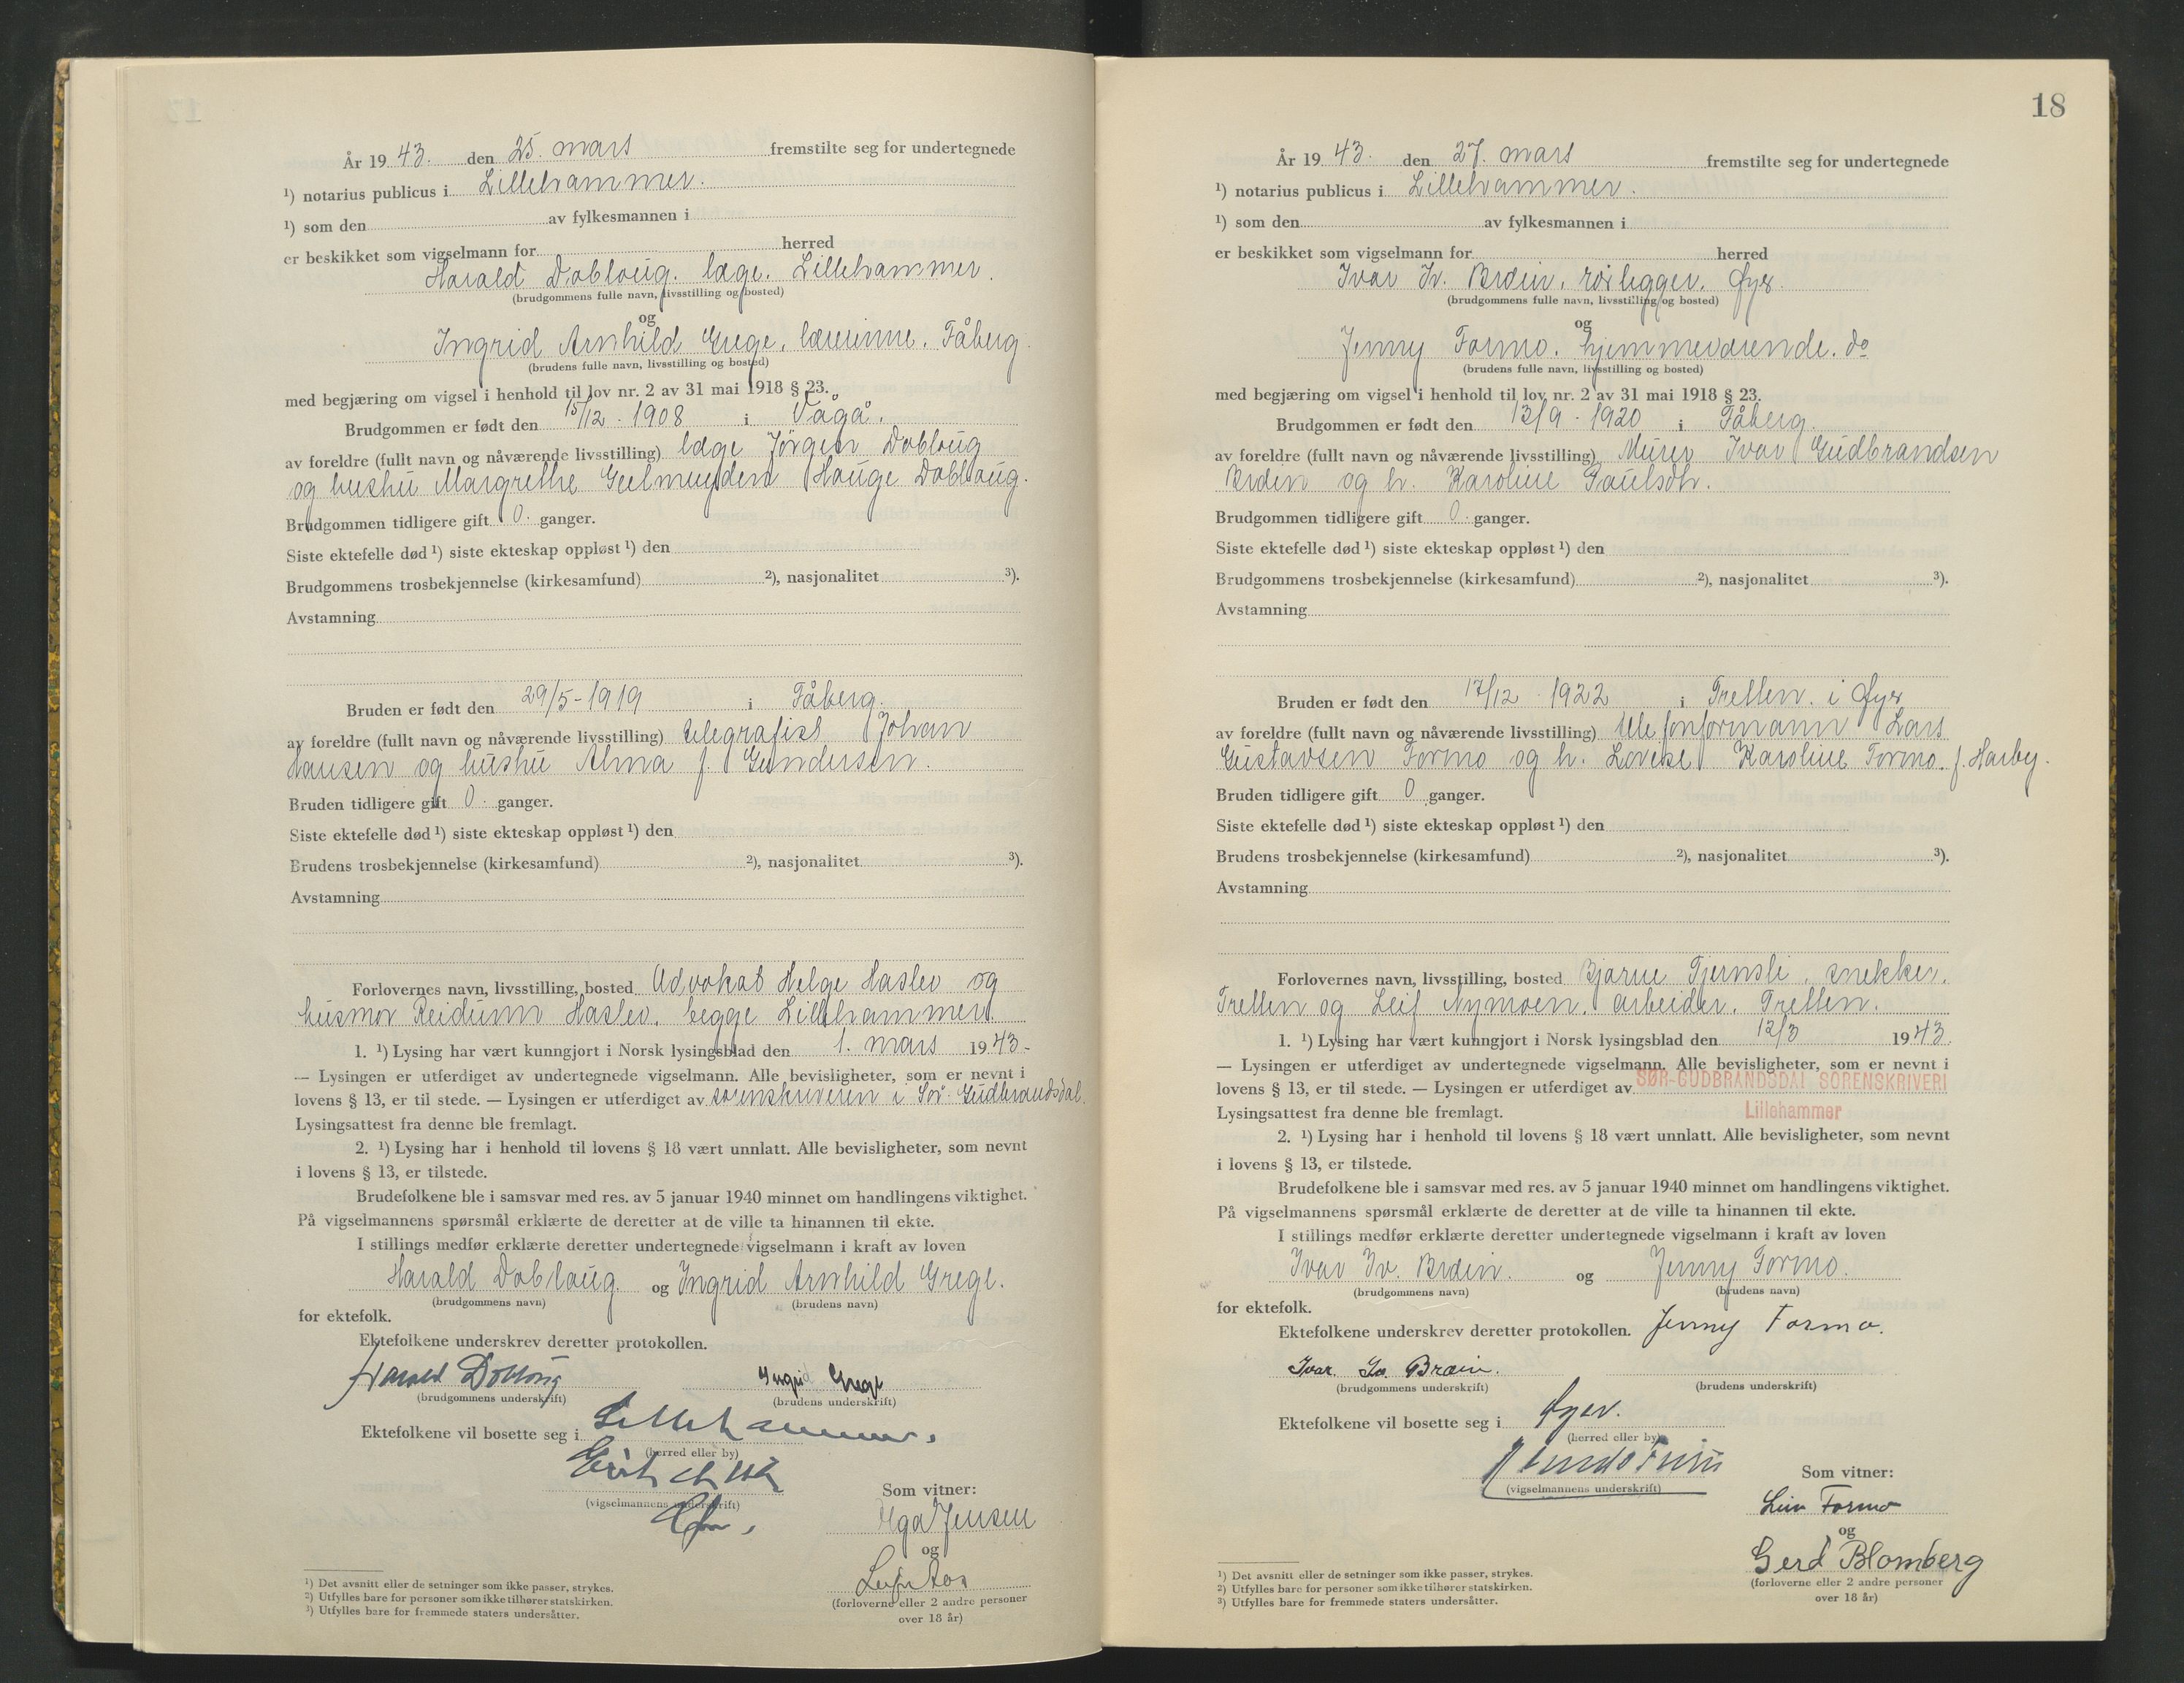 År 1943. den 25. mars fremstilte seg for undertegnede
¹) notarius publicus i Lillehammer.
¹) som den av fylkesmannen i
er beskikket som vigselmann for herred
Harald Dobloug. læge. Lillehammer.
(brudgommens fulle navn, livsstilling og bosted)
og
Ingrid Arnhild Grege, lærerinne. Fåberg.
(brudens fulle navn, livsstilling og bosted)
med begjæring om vigsel i henhold til lov nr. 2 av 31 mai 1918 § 23.
Brudgommen er født den 15/12 - 1908 i Vågå.
av foreldre (fullt navn og nåværende livsstilling) læge Jörgen Dobloug
og hushu Margrethe Geelmuyden Hauge Dobloug.
Brudgommen tidligere gift 0. ganger.
Siste ektefelle død ¹) siste ekteskap oppløst ¹) den
Brudgommens trosbekjennelse (kirkesamfund) ²), nasjonalitet ³).
Avstamning
Bruden er født den 29/5 - 1919 i Fåberg.
av foreldre (fullt navn og nåværende livsstilling) telegrafist Johan
Hansen og hushu Alma f. Gundersen.
Bruden tidligere gift 0. ganger.
Siste ektefelle død ¹) siste ekteskap oppløst ¹) den
Brudens trosbekjennelse (kirkesamfund) ²), nasjonalitet ³).
Avstamning
Forlovernes navn, livsstilling, bosted Advokat Helge Haslev og
husmor Reidunn Haslev. begge Lillehammer.
1. ¹) Lysing har vært kunngjort i Norsk lysingsblad den 1. mars 1943-
— Lysingen er utferdiget av undertegnede vigselmann. Alle bevisligheter, som er nevnt i
lovens § 13, er til stede. — Lysingen er utferdiget av sorenskriveren i Sör-Gudbrandsdal.
Lysingsattest fra denne ble fremlagt.
2. ¹) Lysing har i henhold til lovens § 18 vært unnlatt. Alle bevisligheter, som nevnt
i lovens § 13, er tilstede.
Brudefolkene ble i samsvar med res. av 5 januar 1940 minnet om handlingens viktighet.
På vigselmannens spørsmål erklærte de deretter at de ville ta hinannen til ekte.
I stillings medfør erklærte deretter undertegnede vigselmann i kraft av loven
Harald Dobloug. og Ingrid Arnhild Grege.
(brudgommens navn) (brudens navn)
for ektefolk.
Ektefolkene underskrev deretter protokollen.
Harald Dobloug Ingrid Grege
(brudgommens underskrift) (brudens underskrift)
Ektefolkene vil bosette seg i Lillehammer.
(herred eller by)
(vigselmannens underskrift)
Som vitner:
Jensen
og
Leif
(forloverne eller 2 andre personer
over 18 år)
¹) Det avsnitt eller de setninger som ikke passer, strykes.
²) Utfylles bare for personer som ikke tilhører statskirken.
³) Utfylles bare for fremmede staters undersåtter.
18
År 1943. den 27. mars fremstilte seg for undertegnede
¹) notarius publicus i Lillehammer.
¹) som den av fylkesmannen i
er beskikket som vigselmann for herred
Ivar Iv. Bræin, rörlegger. Øyer.
(brudgommens fulle navn, livsstilling og bosted)
og
Jenny Formo. hjemmeværende. do
(brudens fulle navn, livsstilling og bosted)
med begjæring om vigsel i henhold til lov nr. 2 av 31 mai 1918 § 23.
Brudgommen er født den 13/9 - 1920 i Fåberg.
av foreldre (fullt navn og nåværende livsstilling) Murer Ivar Gudbrandsen
Bræin og h. Karoline Paulsdtr.
Brudgommen tidligere gift 0. ganger.
Siste ektefelle død ¹) siste ekteskap oppløst ¹) den
Brudgommens trosbekjennelse (kirkesamfund) ²), nasjonalitet ³).
Avstamning
Bruden er født den 17/12 - 1922 i Tretten. i Øyer
av foreldre (fullt navn og nåværende livsstilling) telefonformann Lars
Gustavsen Formo og h. Lovise Karoline Formo. f. Harby.
Bruden tidligere gift 0 ganger.
Siste ektefelle død ¹) siste ekteskap oppløst ¹) den
Brudens trosbekjennelse (kirkesamfund) ²), nasjonalitet ³).
Avstamning
Forlovernes navn, livsstilling, bosted Bjarne Tjernsli, snekker.
Tretten og Leif Nymoen. arbeider. Tretten.
1. ¹) Lysing har vært kunngjort i Norsk lysingsblad den 12/3 1943.
— Lysingen er utferdiget av undertegnede vigselmann. Alle bevisligheter, som er nevnt i
lovens § 13, er til stede. — Lysingen er utferdiget av SØR-GUDBRANDSDAL SORENSKRIVERI
Lysingsattest fra denne ble fremlagt. Lillehammer
2. ¹) Lysing har i henhold til lovens § 18 vært unnlatt. Alle bevisligheter, som nevnt
i lovens § 13, er tilstede.
Brudefolkene ble i samsvar med res. av 5 januar 1940 minnet om handlingens viktighet.
På vigselmannens spørsmål erklærte de deretter at de ville ta hinannen til ekte.
I stillings medfør erklærte deretter undertegnede vigselmann i kraft av loven
Ivar Iv. Bræin. og Jenny Formo.
(brudgommens navn) (brudens navn)
for ektefolk.
Ektefolkene underskrev deretter protokollen. Jenny Formo.
Ivar. Iv. Bræin.
(brudgommens underskrift) (brudens underskrift)
Ektefolkene vil bosette seg i Øyer.
(herred eller by)
(vigselmannens underskrift)
Som vitner:
Formo
og
Gerd Blomberg
(forloverne eller 2 andre personer
over 18 år)
¹) Det avsnitt eller de setninger som ikke passer, strykes.
²) Utfylles bare for personer som ikke tilhører statskirken.
³) Utfylles bare for fremmede staters undersåtter.